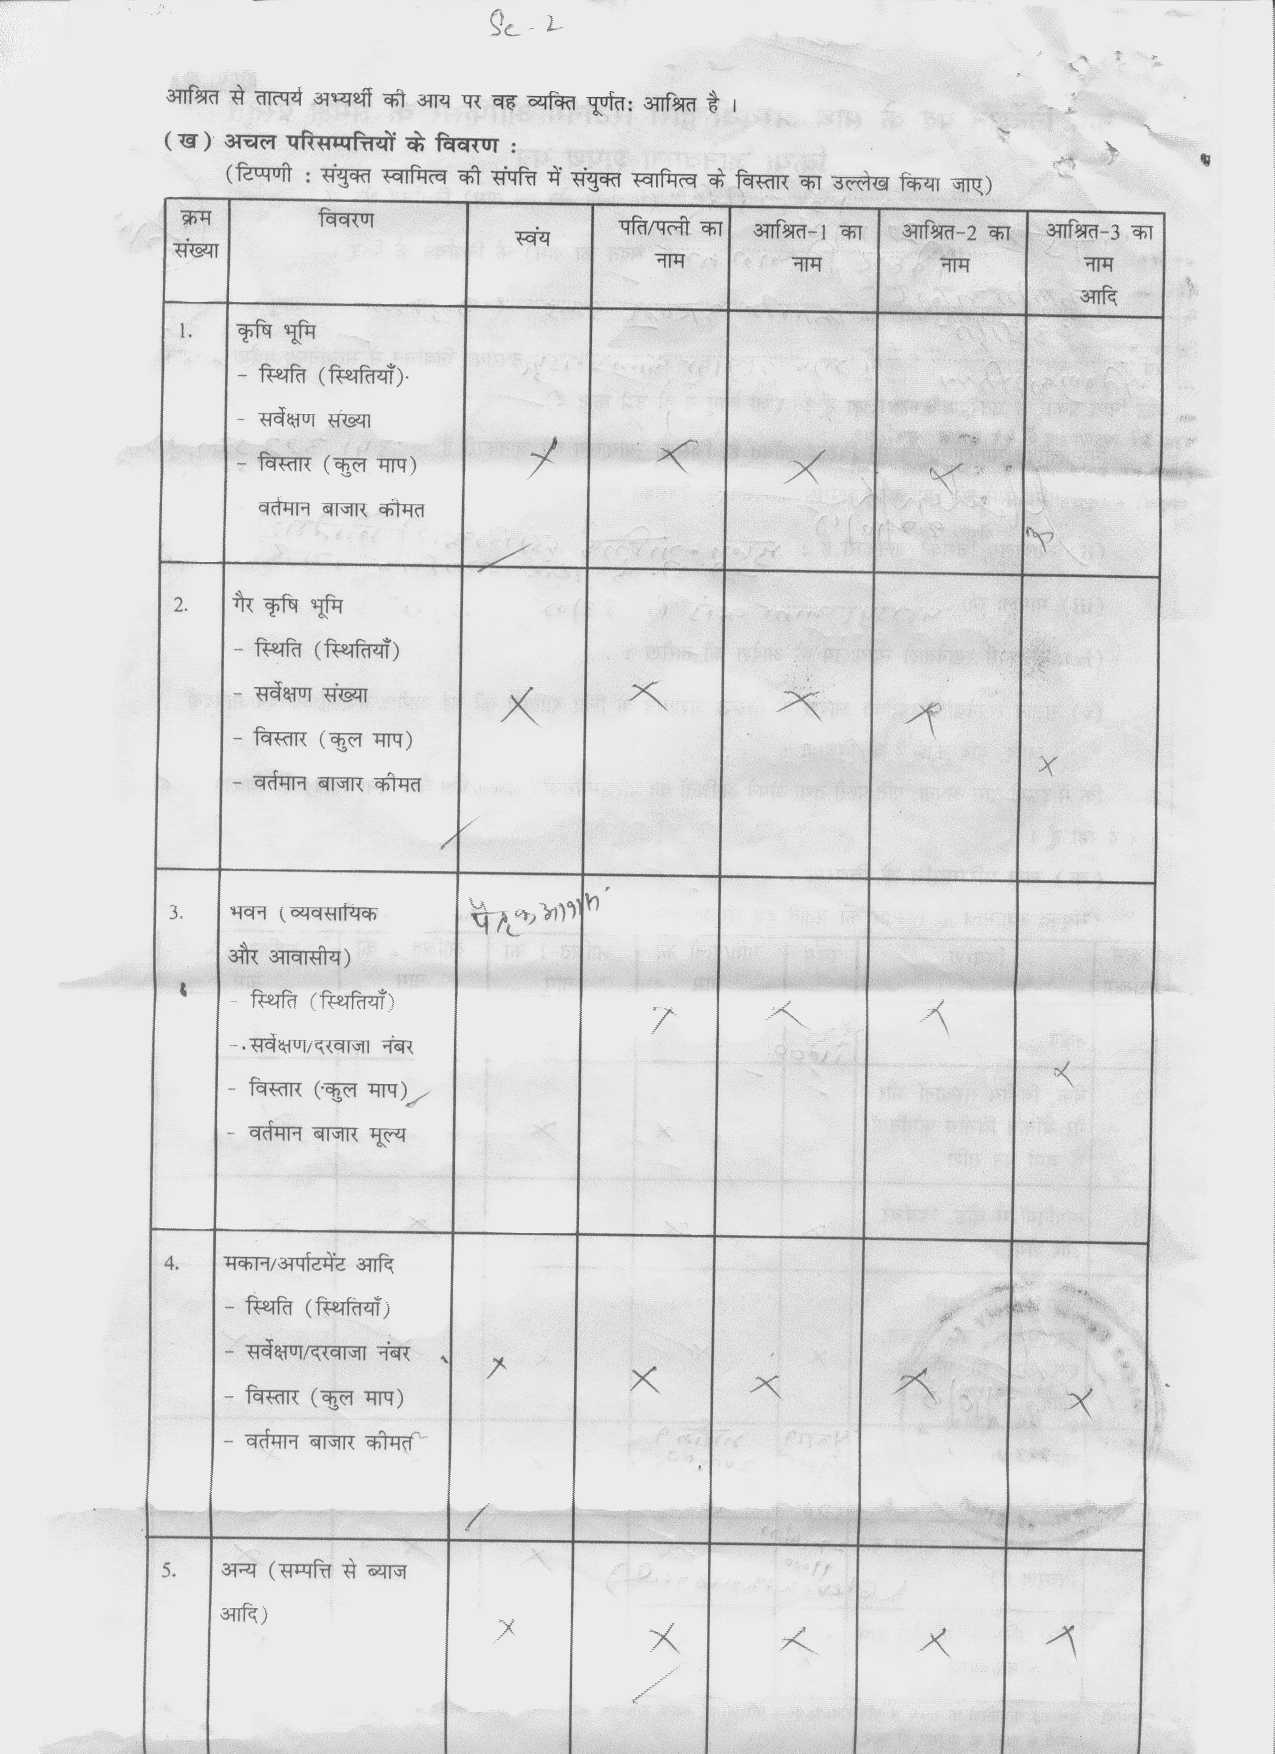 Sc - 2
आश्रित से तात्पर्य अभ्यर्थी की आय पर वह व्यक्ति पूर्णत: आश्रित है ।
(ख) अचल परिसम्पत्तियों के विवरण :
(टिप्पणी : संयुक्त स्वामित्व की संपत्ति में संयुक्त स्वामित्व के विस्तार का उल्लेख किया जाए)
क्रम संख्या विवरण स्वंय पति/पत्नी का नाम आश्रित-1 का नाम आश्रित-2 का नाम आश्रित-3 का नाम आदि
1. कृषि भूमि
- स्थिति (स्थितियाँ)
- सर्वेक्षण संख्या
- विस्तार (कुल माप) X X X X
वर्तमान बाजार कीमत X
2. गैर कृषि भूमि
- स्थिति (स्थितियाँ)
- सर्वेक्षण संख्या X X X X
- विस्तार (कुल माप)
- वर्तमान बाजार कीमत X
3. भवन (व्यवसायिक पैतृक
और आवासीय)
- स्थिति (स्थितियाँ) X X X
- सर्वेक्षण/दरवाजा नंबर
- विस्तार (कुल माप) X
- वर्तमान बाजार मूल्य
4. मकान/अर्पाटमेंट आदि
- स्थिति (स्थितियाँ)
- सर्वेक्षण/दरवाजा नंबर X X X X
- विस्तार (कुल माप) X
- वर्तमान बाजार कीमत
5. अन्य (सम्पत्ति से ब्याज
आदि) X X X X X